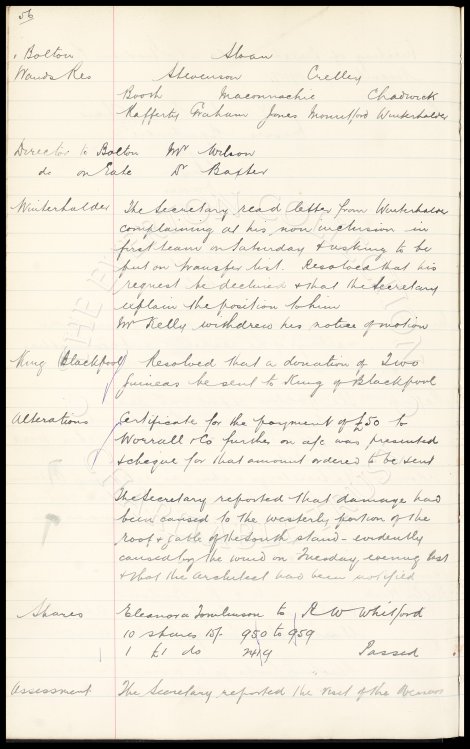 56
Bolton Sloan
Wands Res Stevenson Crelley
Booth Maconnachie Chadwick
Rafferty Graham Jones Mountford Winterhalder
Director to Bolton Mr Wilson
do on Eale Dr Baxter
Winterhalder The Secretary read letter from Winterhalder
complaining at his non inclusion in
first team on Saturday & asking to be
put on transfer list. Resolved that his
request be declined & that the Secretary
explain the position to him
Mr Kelly withdrew his notice of motion
King (Blackpool) Resolved that a donation of Two
Guineas be sent to King of Blackpool
Alterations Certificate for the payment of £50 to
Worrall & Co further on a/c was presented
& cheque for that amount ordered to be sent
The Secretary reported that damage had
been caused to the westerly portion of the
roof & gable of the South stand - evidently
caused by the wind on Tuesday evening last
& that the architect had been notified
Shares Eleanora Tomlinson to R W Whitford
10 shares 15/- 950 to 959
1 £1 do Passed
Assessment The Secretary reported the visit of the